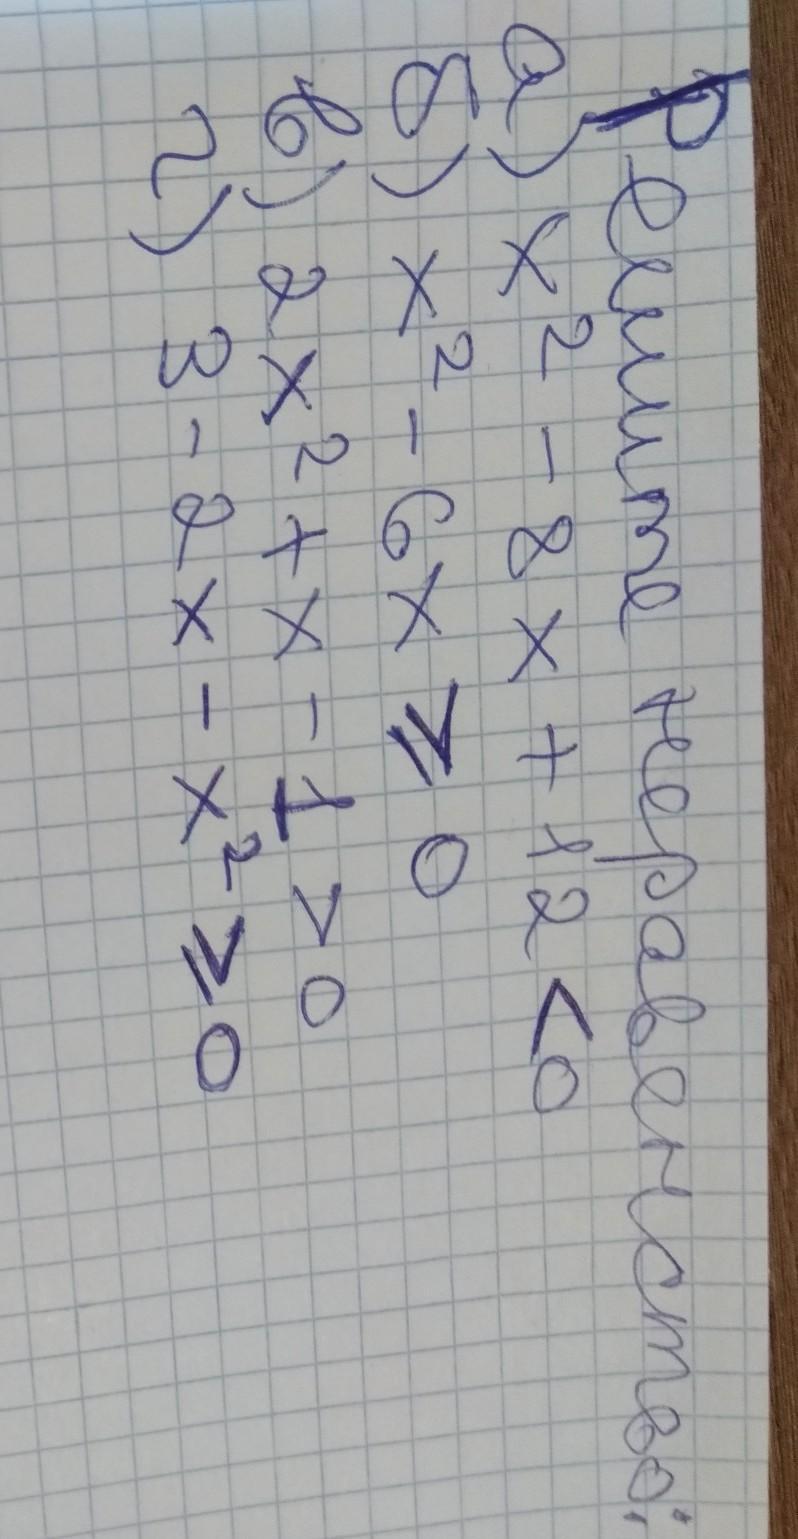 Решите неравенство:
а) x² - 8x + 12 < 0
б) x² - 6x ⩾ 0
в) 2x² + x - 1 > 0
г) 3 - 2x - x² ⩾ 0